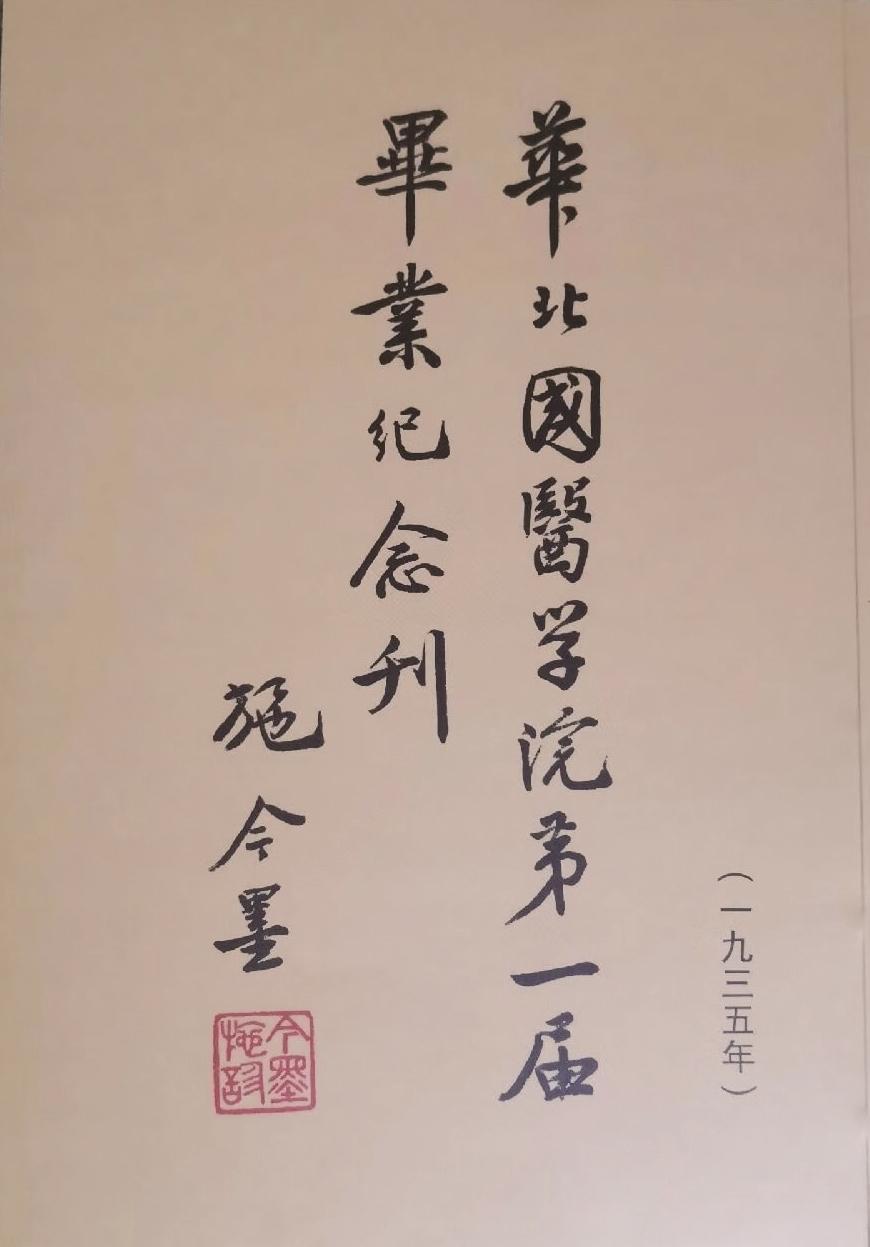 （一九三五年）
華北國醫学院第一届
畢業紀念刊
施今墨
今墨
施診